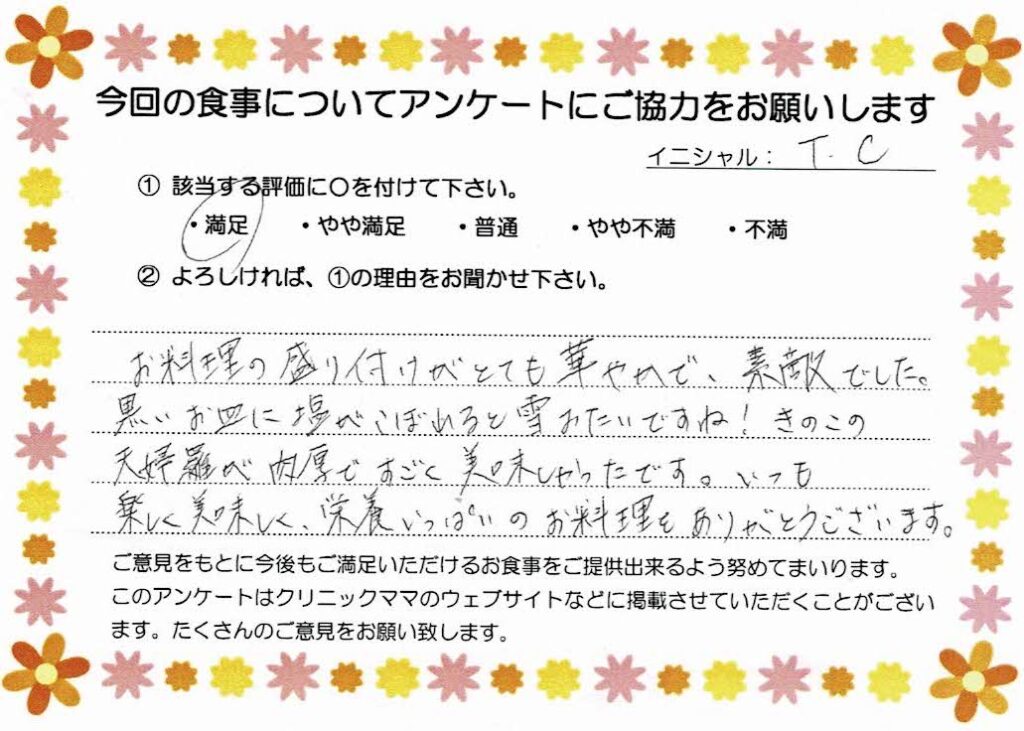 今回の食事についてアンケートにご協力をお願いします
イニシャル： T. C
① 該当する評価に○を付けて下さい。
・満足 ・やや満足 ・普通 ・やや不満 ・不満
② よろしければ、①の理由をお聞かせ下さい。
お料理の盛り付けがとても華やかで、素敵でした。
黒いお皿に塩がこぼれると雪みたいですね！きのこの
天婦羅が肉厚ですごく美味しかったです。いつも
楽しく美味しく、栄養いっぱいのお料理をありがとうございます。
ご意見をもとに今後もご満足いただけるお食事をご提供出来るよう努めてまいります。
このアンケートはクリニックママのウェブサイトなどに掲載させていただくことがござい
ます。たくさんのご意見をお願い致します。